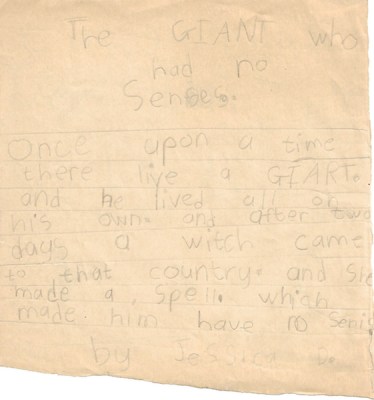 The GIANT who
had no
Senses.
Once upon a time
there live a GIART.
and he lived all on
his own. and after two
days a witch came
to that country. and She
made a spell. which
made. him have no Senis
by Jessica D.